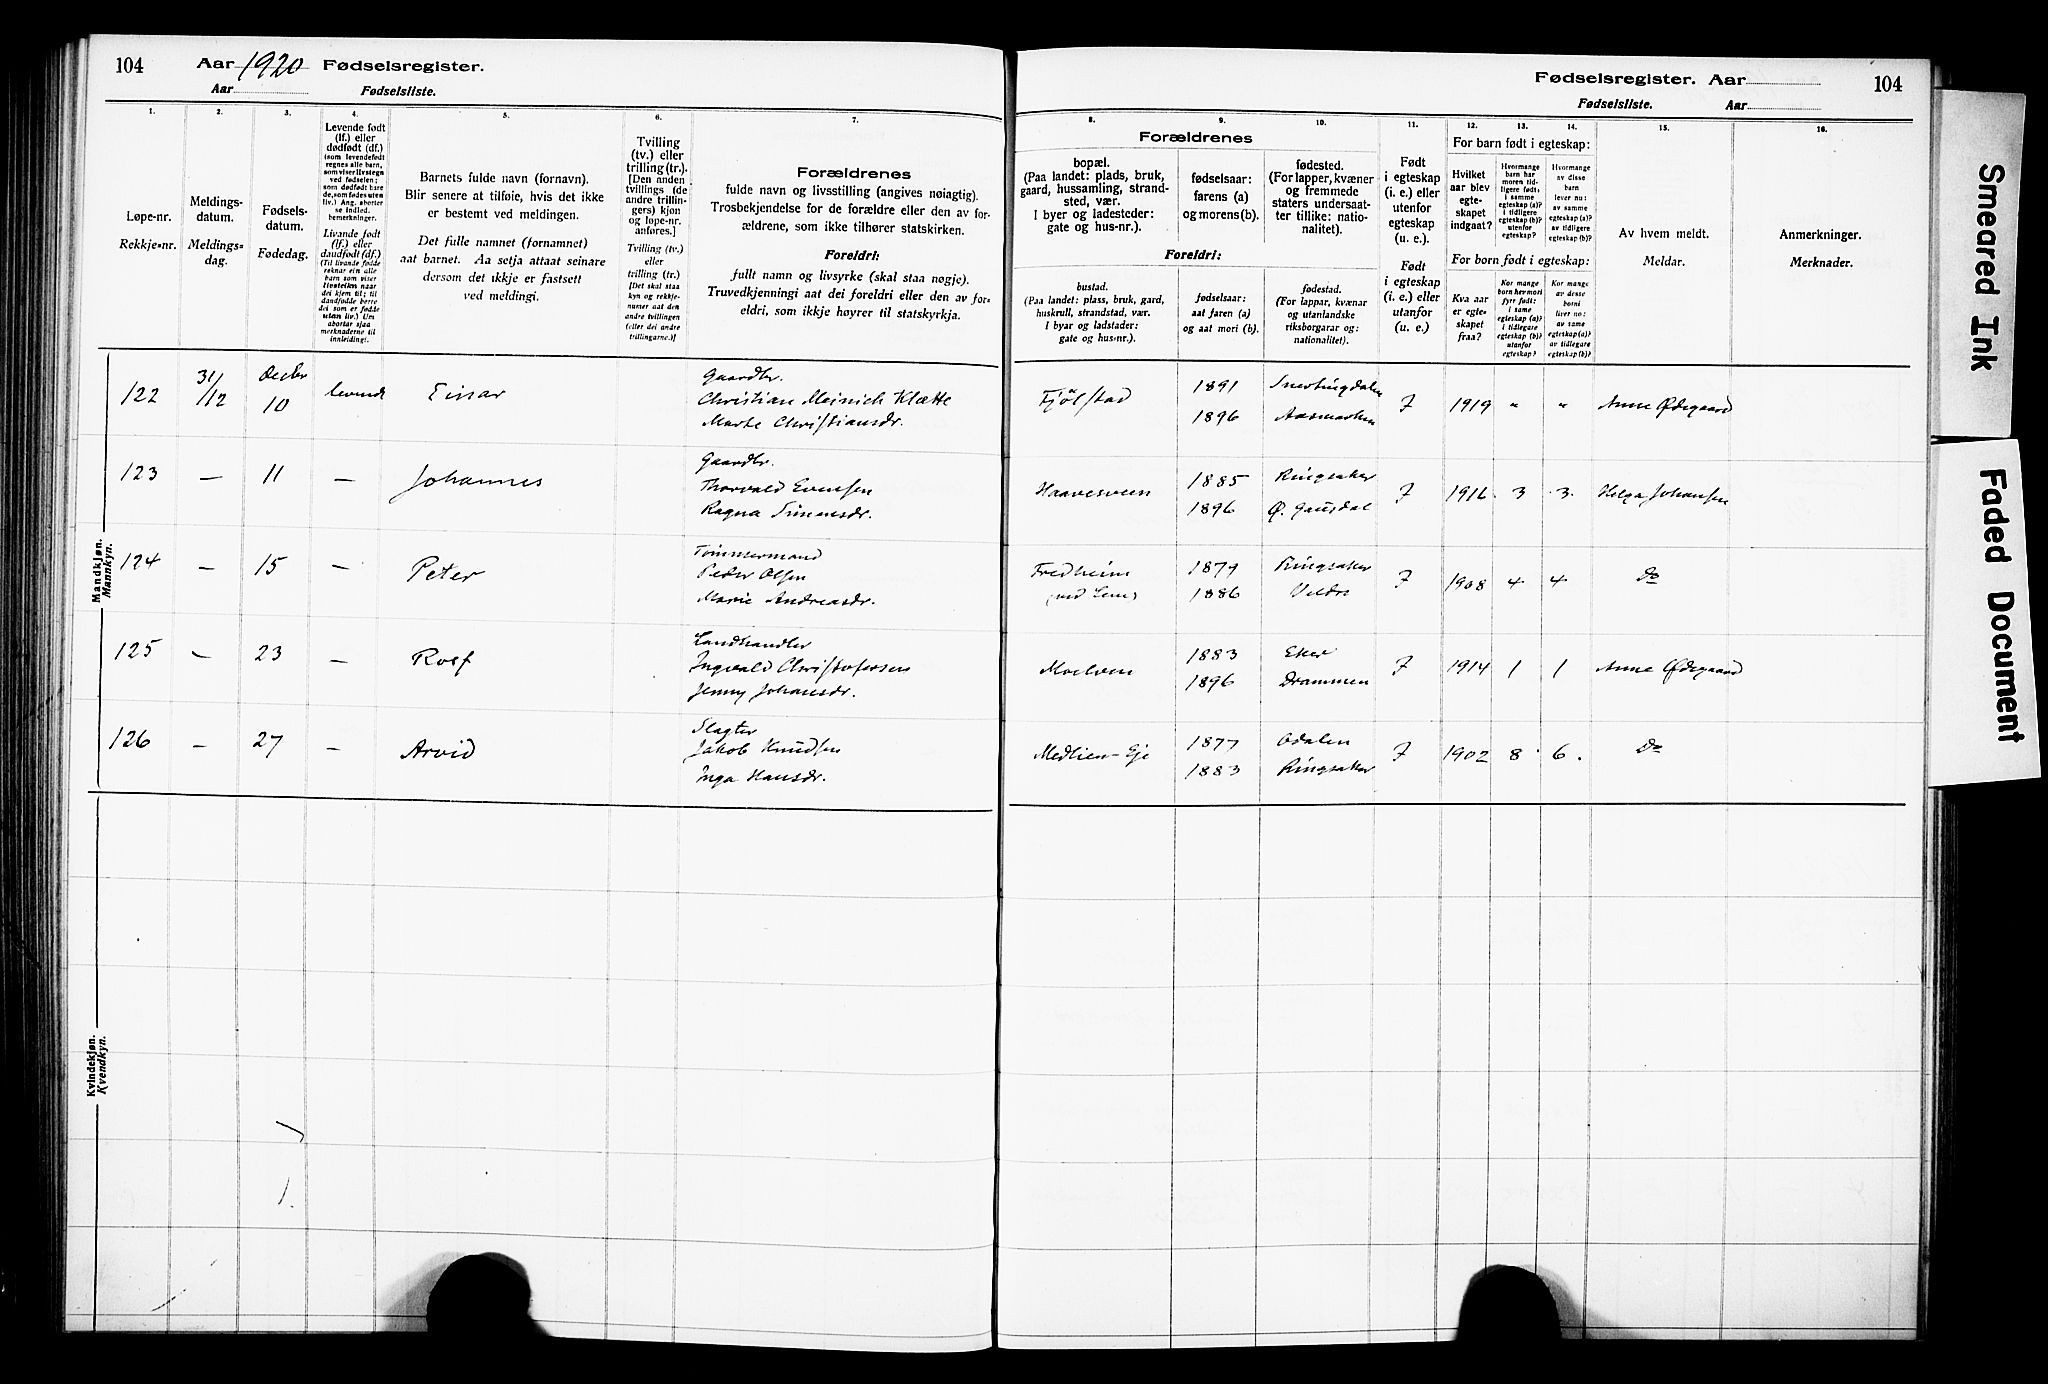 104 Aar 1920 Fødselsregister.
Aar Fødselsliste.
Fødselsregister. Aar 104
Fødselsliste. Aar
1. 2. 3. 4. 5. 6. 7. 8. 9. 10. 11. 12. 13. 14. 15. 16.
Løpe-nr.
Rekkje-nr.
Meldings-
datum.
Meldings-
dag.
Fødsels-
datum.
Fødedag.
Levende født
(lf.) eller
dødfødt (df.)
(som levendefødt
regnes alle barn,
som viser livstegn
ved fødselen;
som dødfødt bare
de, som fødes uten
liv.) Ang. aborter
se indled.
bemerkninger.
Livande født
(lf.) eller
daudfødt (df.)
(Til livande fødde
reknar ein alle
barn som viser
livsteikn naar
dei kjem til; til
daudfødde berre
dei som er fødde
utan liv.) Um
abortar sjaa
merknaderne til
innleiding!.
Barnets fulde navn (fornavn).
Blir senere at tilføie, hvis det ikke
er bestemt ved meldingen.
Det fulle namnet (fornamnet)
aat barnet. Aa setja attaat seinare
dersom det ikkje er fastsett
ved meldingi.
Tvilling
(tv.) eller
trilling (tr.).
[Den anden
tvillings (de
andre trillin-
gers) kjøn
og løpe-nr.
anføres.]
Tvilling (tv.)
eller
trilling (tr.)
[Det skal staa
kyn og rekkje-
numer aat den
andre tvillingen
(eller dei andre
trillingarne.)]
Forældrenes
fulde navn og livsstilling (angives nøiagtig).
Trosbekjendelse for de forældre eller den av for-
ældrene, som ikke tilhører statskirken.
Foreldri:
fullt namn og livsyrke (skal staa nøgje).
Truvedkjenningi aat dei foreldri eller den av for-
eldri, som ikkje høyrer til statskyrkja.
Forældrenes
bopæl.
(Paa landet: plads, bruk,
gaard, hussamling, strand-
sted, vær.
I byer og ladesteder:
gate og hus-nr.).
fødselsaar:
farens (a)
og morens (b).
fødested.
(For lapper, kvæner
og fremmede
staters undersaat-
ter tillike: natio-
nalitet).
Foreldri:
bustad.
(Paa landet: plass, bruk, gard,
huskrull, strandstad, vær.
I byar og ladstader:
gate og hus-nr.).
fødselsaar:
aat faren (a)
og aat mori (b).
fødestad.
(For lappar, kvænar
og utanlandske
riksborgarar og:
nationalitet).
Født
i egteskap
(i. e.) eller
utenfor
egteskap
(u. e.).
Født
i egteskap
(i. e.) eller
utanfor
(u. e.)
For barn født i egteskap:
Hvilket
aar blev
egte-
skapet
indgaat?
Hvormange
barn har
moren tid-
ligere født:
i samme
egteskap (a)?
i tidligere
egteskap (b)?
utenfor
egteskap?
Hvormange
av disse
barn
lever nu:
av samme
egteskap (a)?
av tidligere
egteskap (b)?
For born født i egteskap:
Kva aar
er egte-
skapet
fraa?
Kor mange
born hev mori
fyrr født:
i same
egteskap (a)?
i tidlegare
egteskap (b)?
utanfor
egteskap?
Kor mange
av desse
borni
liver no:
av same
egteskap (a)?
av tidlegare
egteskap (b)?
Av hvem meldt.
Meldar.
Anmerkninger.
Merknader.
Mandkjøn.
Mannkyn.
122 31/12 Decbr 10 levende Einar
Gaardbr.
Christian Meinich Klætte
Marte Christiansdr.
Fjölstad 1891 Snertingdalen
1896 Aasmarken
J 1919 " " Anne Ødegaard
123 — 11 — Johannes
Gaardbr.
Thorvald Evensen
Ragna Simensdr.
Haavesveen 1885 Ringsaker
1896 Ø. Gausdal
J 1916 3 3 Helga Johansen
124 — 15 — Peter
Tömmermand
Peder Olsen
Marie Andreasdr.
Fredheim
(ved Lein)
1879 Ringsaker
1886 Veldre
J 1908 4 4 Do
125 — 23 — Rolf
Landhandler
Ingvald Christofersen
Jenny Johansdr.
Moelven 1883 Eker
1896 Drammen
J 1914 1 1 Anne Ødegaard
126 — 27 — Arvid
Slagter
Jakob Knudsen
Inga Hansdr.
Medlien-Eje 1877 Odalen
1883 Ringsaker
J 1902 8 6. Do
Kvindekjøn.
Kvendkyn.
Smeared Ink
Faded Document